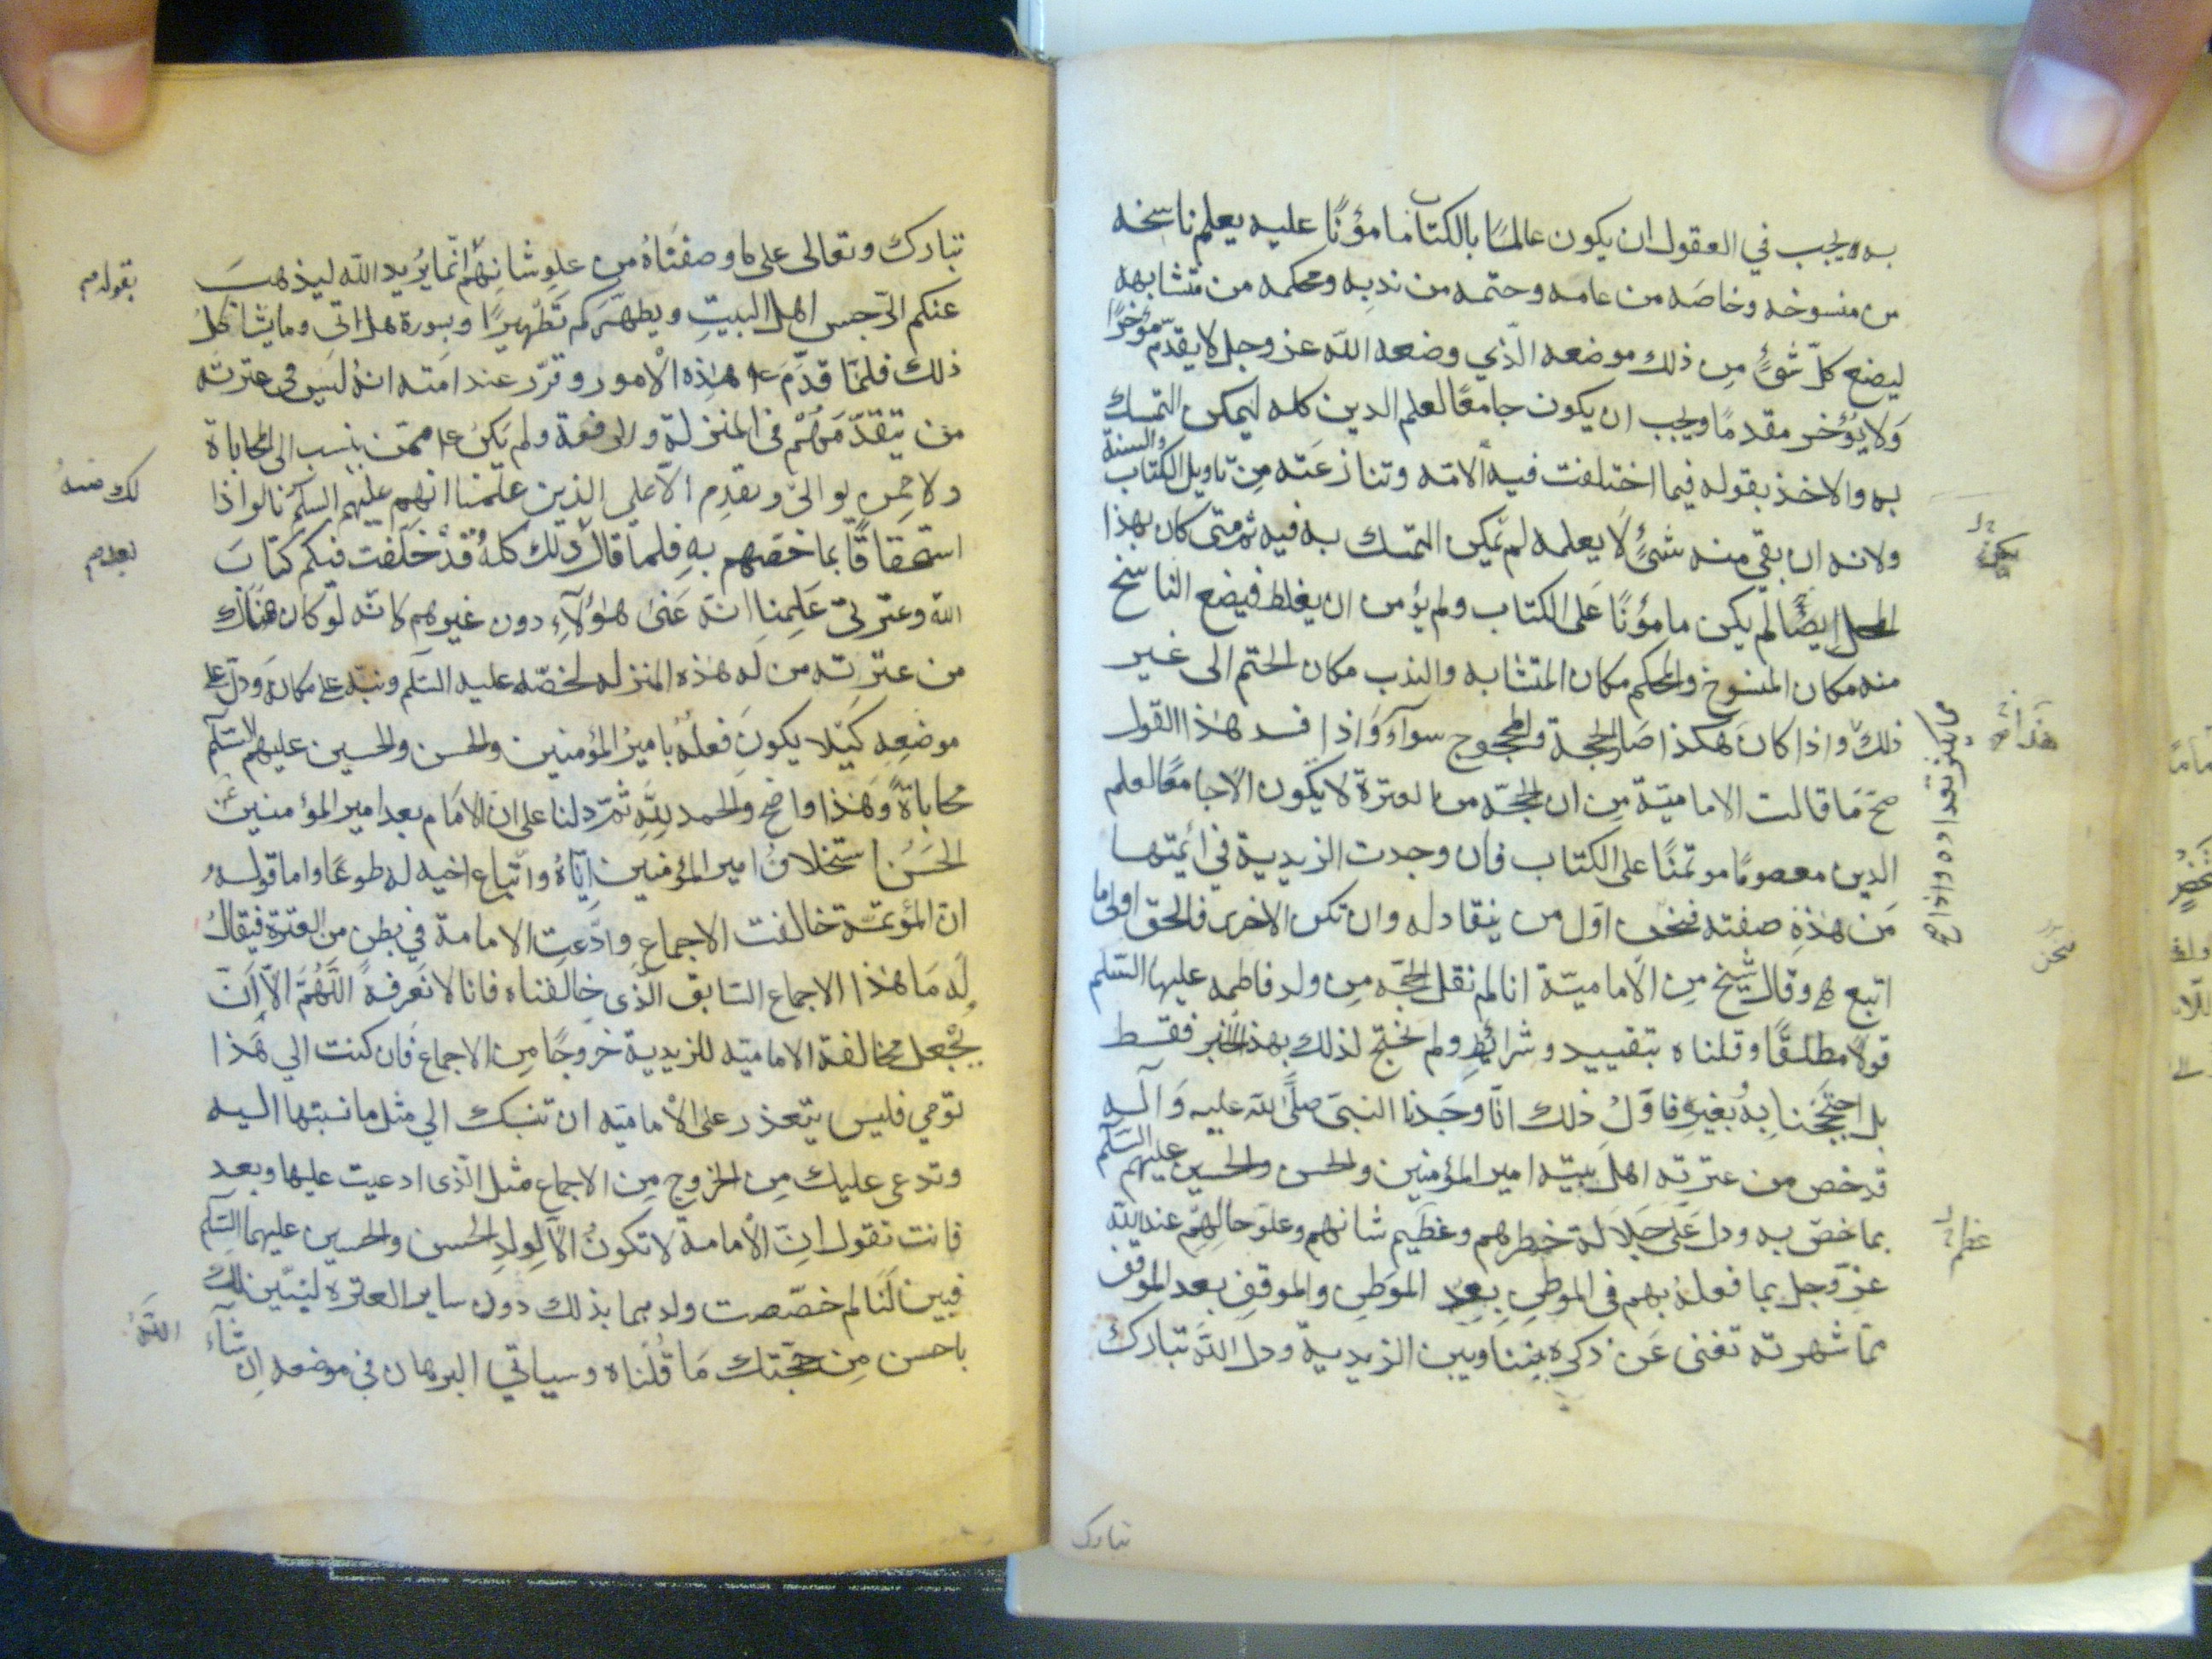 به ويجب في العقول ان يكون عالمًا بالكتاب مامونًا عليه يعلم ناسخه
من منسوخه وخاصه من عامه وحتمه من ندبه ومحكمه من متشابهه
ليضع كلّ شئ مِن ذلك موضعه الّذي وضعه اللّه عز وجل لا يقدّم مؤخرًا
وَلا يؤخر مقدمًا ويجب ان يكون جامعًا لعلم الدين كله ليمكن التمسك
به والاخذ بقوله فيما اختلفت فيه الامّة وتنازعته مِن تاويل الكتاب والسنة
ولانه ان بقي منه شئ لا يعلمه لم يمكن التمسك به فيه ثم متى كان بهذا
المحل ايضًا لم يكن مامونًا عَلى الكتاب ولم يؤمن ان يغلط فيضع الناسخ
منه مكان المنسوخ والمحكم مكان المتشابه والندب مكان الحتم الى غير
ذلك واذا كانَ هكذا صَار الحجة والمحجوج سوآء وَاذا فسد هٰذا القول
صحّ مَا قالت الاماميّة مِن ان الحجّة من العترة لا يكون الا جامعًا لعلم
الدين معصومًا موتمنًا على الكتاب فان وجدت الزيدية في ائمتها
مَن هٰذهِ صفته فنحن اوّل من ينقاد له وان تكن الاخرى فالحق اولى ما
اتبع وقال شيخ مِن الاماميّة انا لم نقل الحجّة مِن ولد فاطمه عليها السّلم
قولًا مطلقًا وقلناه بتقييد وشرائط ولم نحتج لذلك بهذا الخبر فقط
بل احتججنا بِهِ وبغيرِه فاوّلُ ذلك انّا وجَدنا النبيّ صلّى اللّه عليه وَآله
قد خص من عترته اهل بيته امير المؤمنين والحسن والحسين عليهم السّلم
بما خصّ به ودل عَلى جلالة خطرهم وعظيم شانهم وعلو حالِهِم عند اللّه
عزّ وجل بما فعلهُ بهم في الموطن بعد الموطن والموقفِ بعد الموقف
ممّا شهرته تغنى عَن ذكره بيننا وبين الزيدية ودل اللّه تبارك
تبارك
تبارك وتعالى على ما وصفناهُ من علوِ شانِهم بقوله انّما يُريد اللّه ليذهبَ
عنكم الرّجس اهل البيتِ ويطهّركم تَطهيرًا وبسورة هل اتى وما يشاكلُ
ذلك فلمّا قدَّمَ ع هٰذِه الأمور وقرّر عند امّته انهُ ليسَ في عترته
من يتقدّمهُم في المنزلة والرفعة ولم يَكن ع ممّن ينسب الى المحاباة
ولا ممن يوالي ويقدم الّا على الدين علمنا انهم عليهم السلم نالوا ذلك منه
استحقاقًا بما خصّهم بهِ فلما قال بعد ذلك كلهُ قَدْ خلّفت فيكم كتابَ
اللّه وعترتي عَلِمنا انّه عَنىٰ هٰؤلآءِ دون غيرهم لانّه لو كان هُناك
من عترته من له هٰذه المنزله لخصّه عليه السّلم ونبّه على مكانه ودلّ على
موضعِه كيلا يكونَ فعلهُ بامير المؤمنين والحسن والحسين عليهم السّلم
محاباةً وَهٰذا واضح والحمد للّه ثمّ دلنا على انّ الامَام بعد امير المؤمنين
الحَسَن استخلافُ امير المؤمنين ايّاهُ واتّباع اخيه له طوعًا واما قوله
انّ المؤتمّة خالفت الاجماع وادّعت الامامة في بطن من العترة فيقالُ
له مَا هٰذا الاجماع السّابق الّذى خالفناه فانا لا نعرفهُ اللّهُمّ الّا انّ
تجعل مخالفة الاماميّه للزيدية خروجًا مِن الاجماع فان كنت الي هٰذا
تومي فليس يتعذر على الأماميّه ان تنسبك الي مثل ما نسبتها اليه
وتدعى عليك مِن الخروج مِن الاجماع مثل الّذى ادعيت عليها وبعد
فانت تقول انّ الأمامةَ لا تكونُ الّا لِولدِ الحُسن والحسين عليهما السّلم
فبين لَنا لم خصّصت ولدهما بذلك دون ساير العترة لنبيّن لك
باحسن مِن حجّتك مَا قُلناه وسياتي البرهان في موضعه اِن شآء
اللّهُ